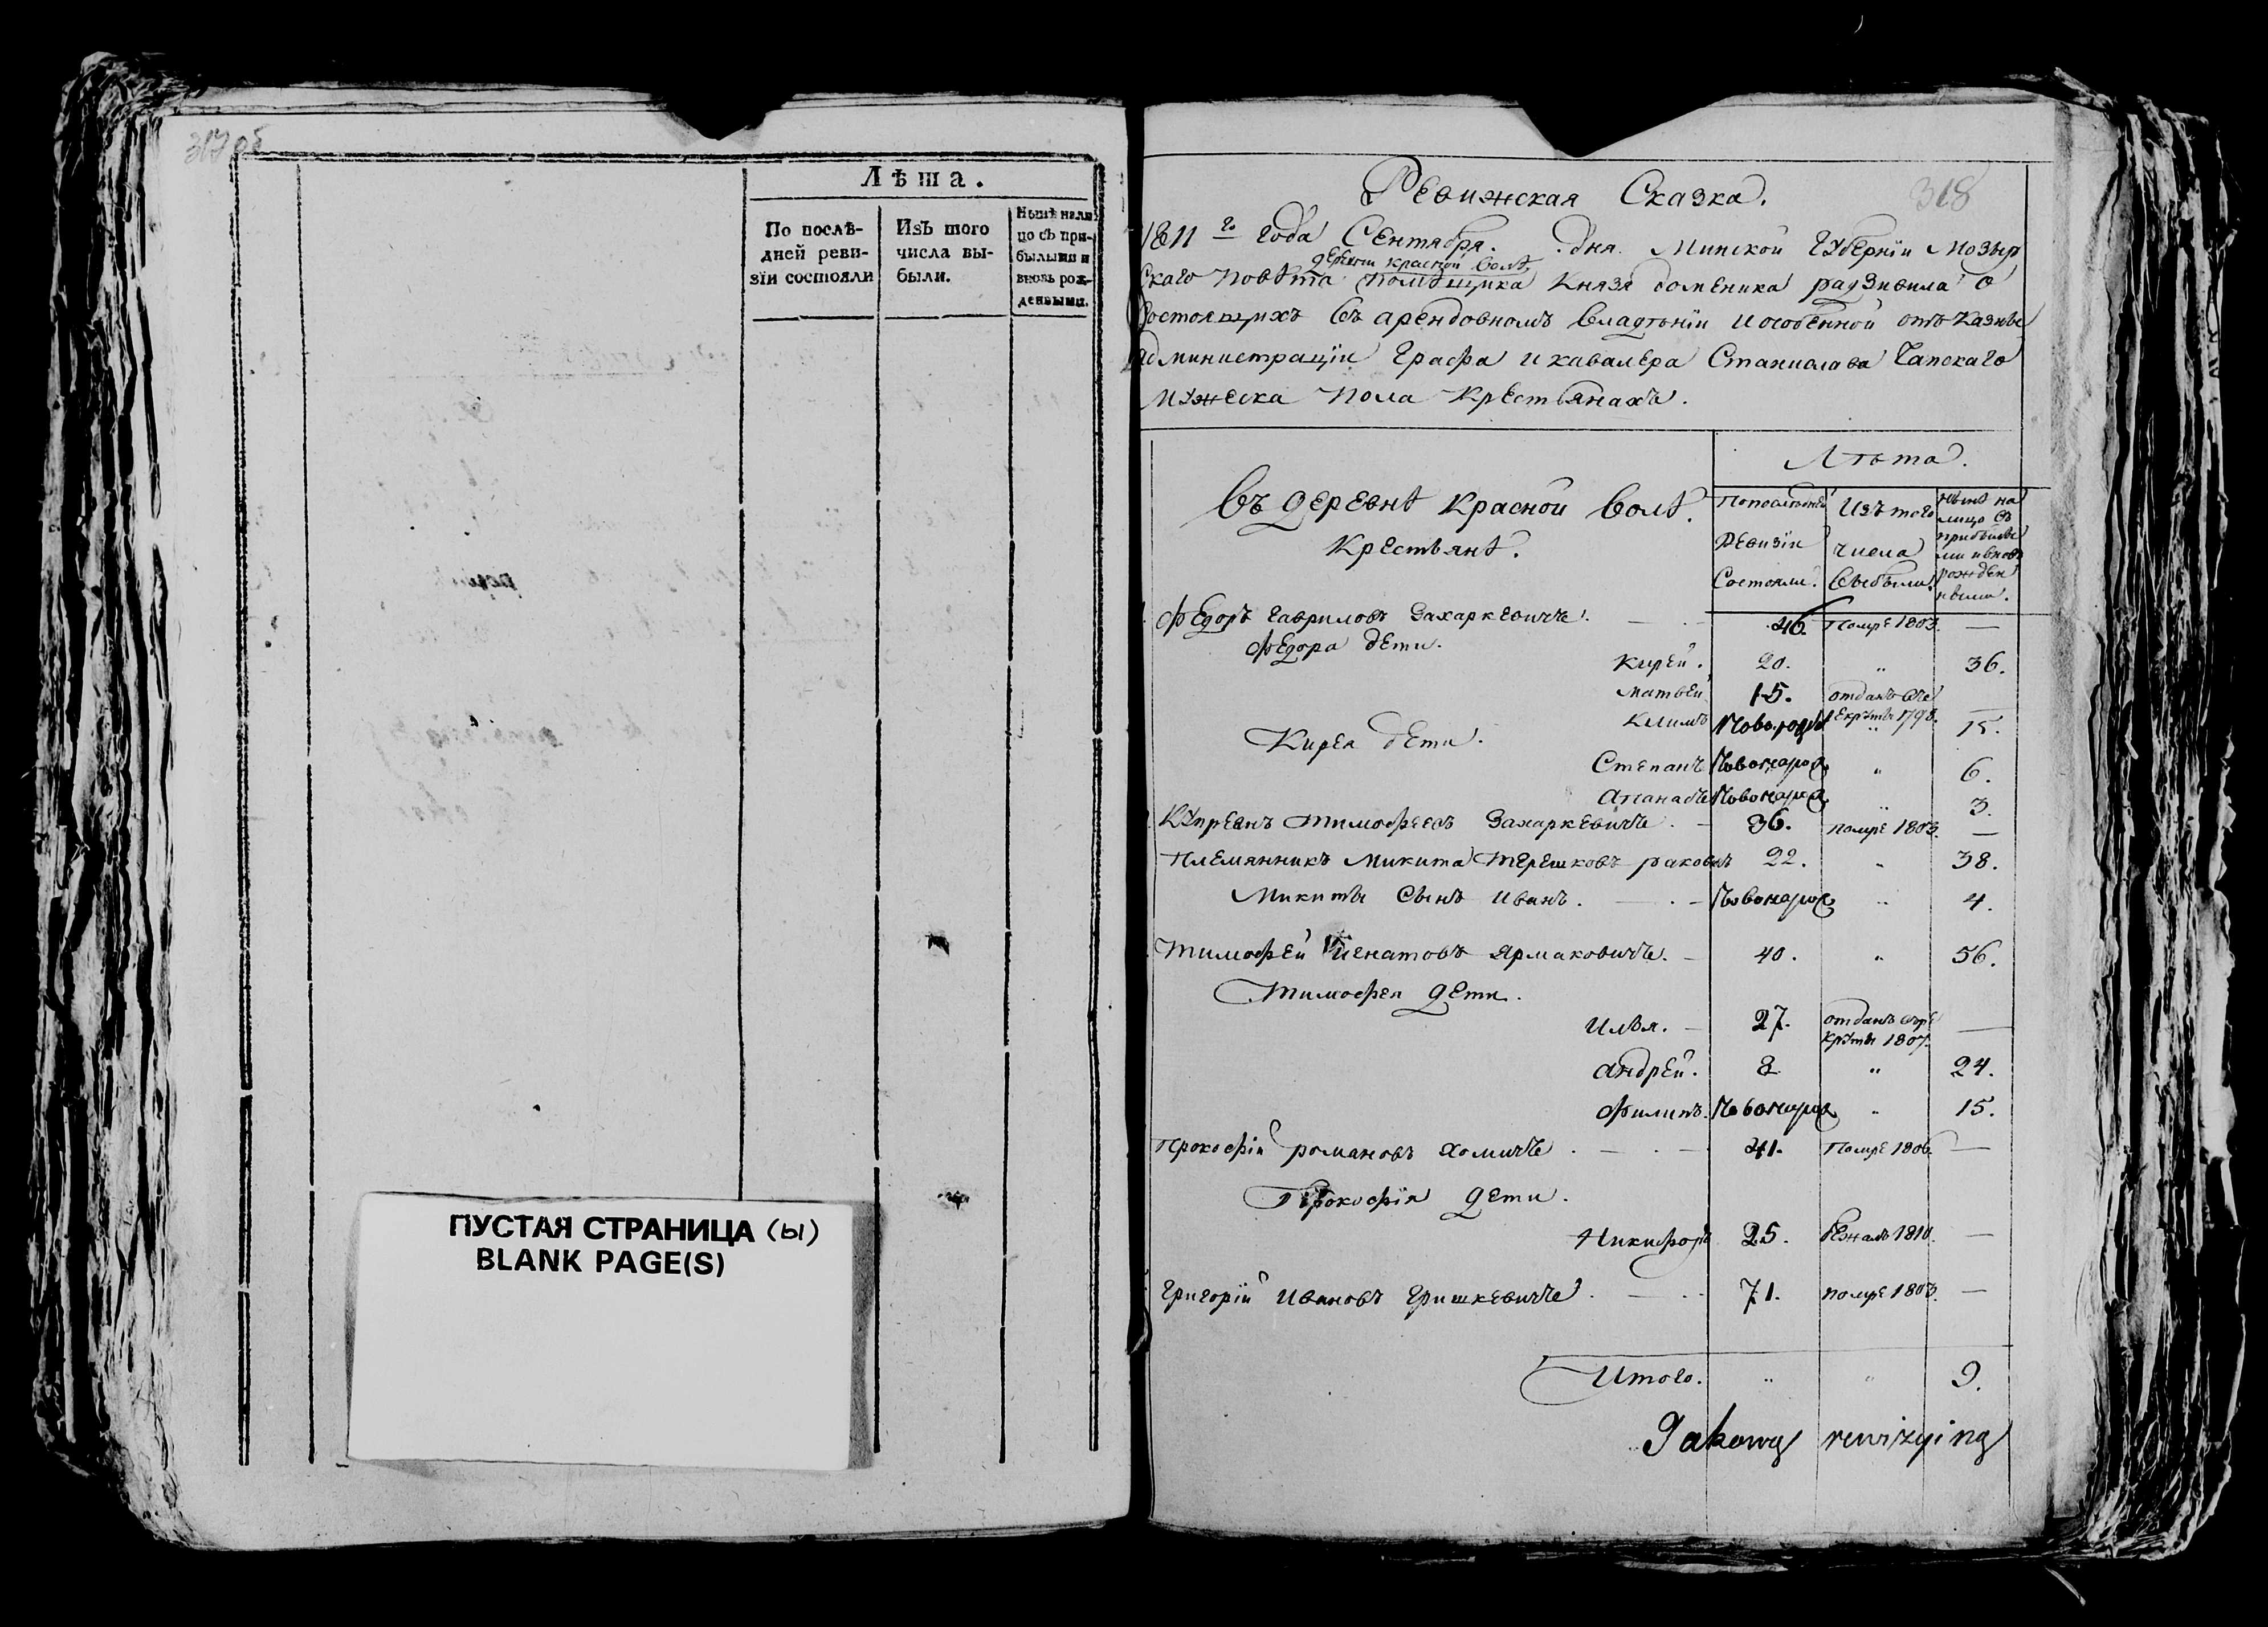 317 об
Лѣта.
По послѣ-
дней реви-
зіи состояли
Изъ того
числа вы-
были.
Нынѣ нали
цо съ при-
былыми и
вновь рож-
денными.
ПУСТАЯ СТРАНИЦА (ы)
BLANK PAGE(S)
318
Ревижская Сказка.
1811 го года Сентября. дня. Минской Губерніи Мозыр
деревни красной Волѣ
скаго Повѣта Помѣщика Князя доменика радзивила о
состоящихъ въ арендовномъ владѣніи и особенной отъ казны
администраціи Графа и кавалера Станислава Чапскаго
мужеска пола Крестьянахъ.
Въ деревнѣ Красной Волѣ.
Крестьянѣ.
Лѣта.
По послѣдней
Ревизіи
Состояли.
Изъ того
числа
Выбыли.
Нынѣ на
лицо съ
прибылы
ми и вновь
рожден
ными.
Федоръ Гавриловъ Захаркевичъ. 46 Помре 1803. —
Федора дети.
Кирей. 20. " 36.
Матвей 15. отданъ въ ре
екруты 1798. —
Кирея дети.
Климъ Новорож " 15.
Степанъ Новонарож " 6.
Апанасъ Новонарож " 3.
Купреянъ Тимофеевъ Захаркевичъ. 36. помре 1803. —
Племянникъ Микита Терешковъ раковичъ 22. " 38.
Микиты Сынъ Иванъ. Новонарож " 4.
Тимофей Игнатовъ Ярмаковичъ. 40. " 56.
Тимофея дети.
Илья. 27. отданъ въ ре
круты 1807. —
Андрей. 8 " 24.
Филипъ. Новонарож " 15.
Прокофій романовъ Хомичъ. 41. Помре 1806. —
Прокофія дети.
Никифоръ 25. бежалъ 1810. —
Григорій Ивановъ Гришкевичъ. 71. помре 1803. —
Итого. " " 9.
Jakową rewizyiną